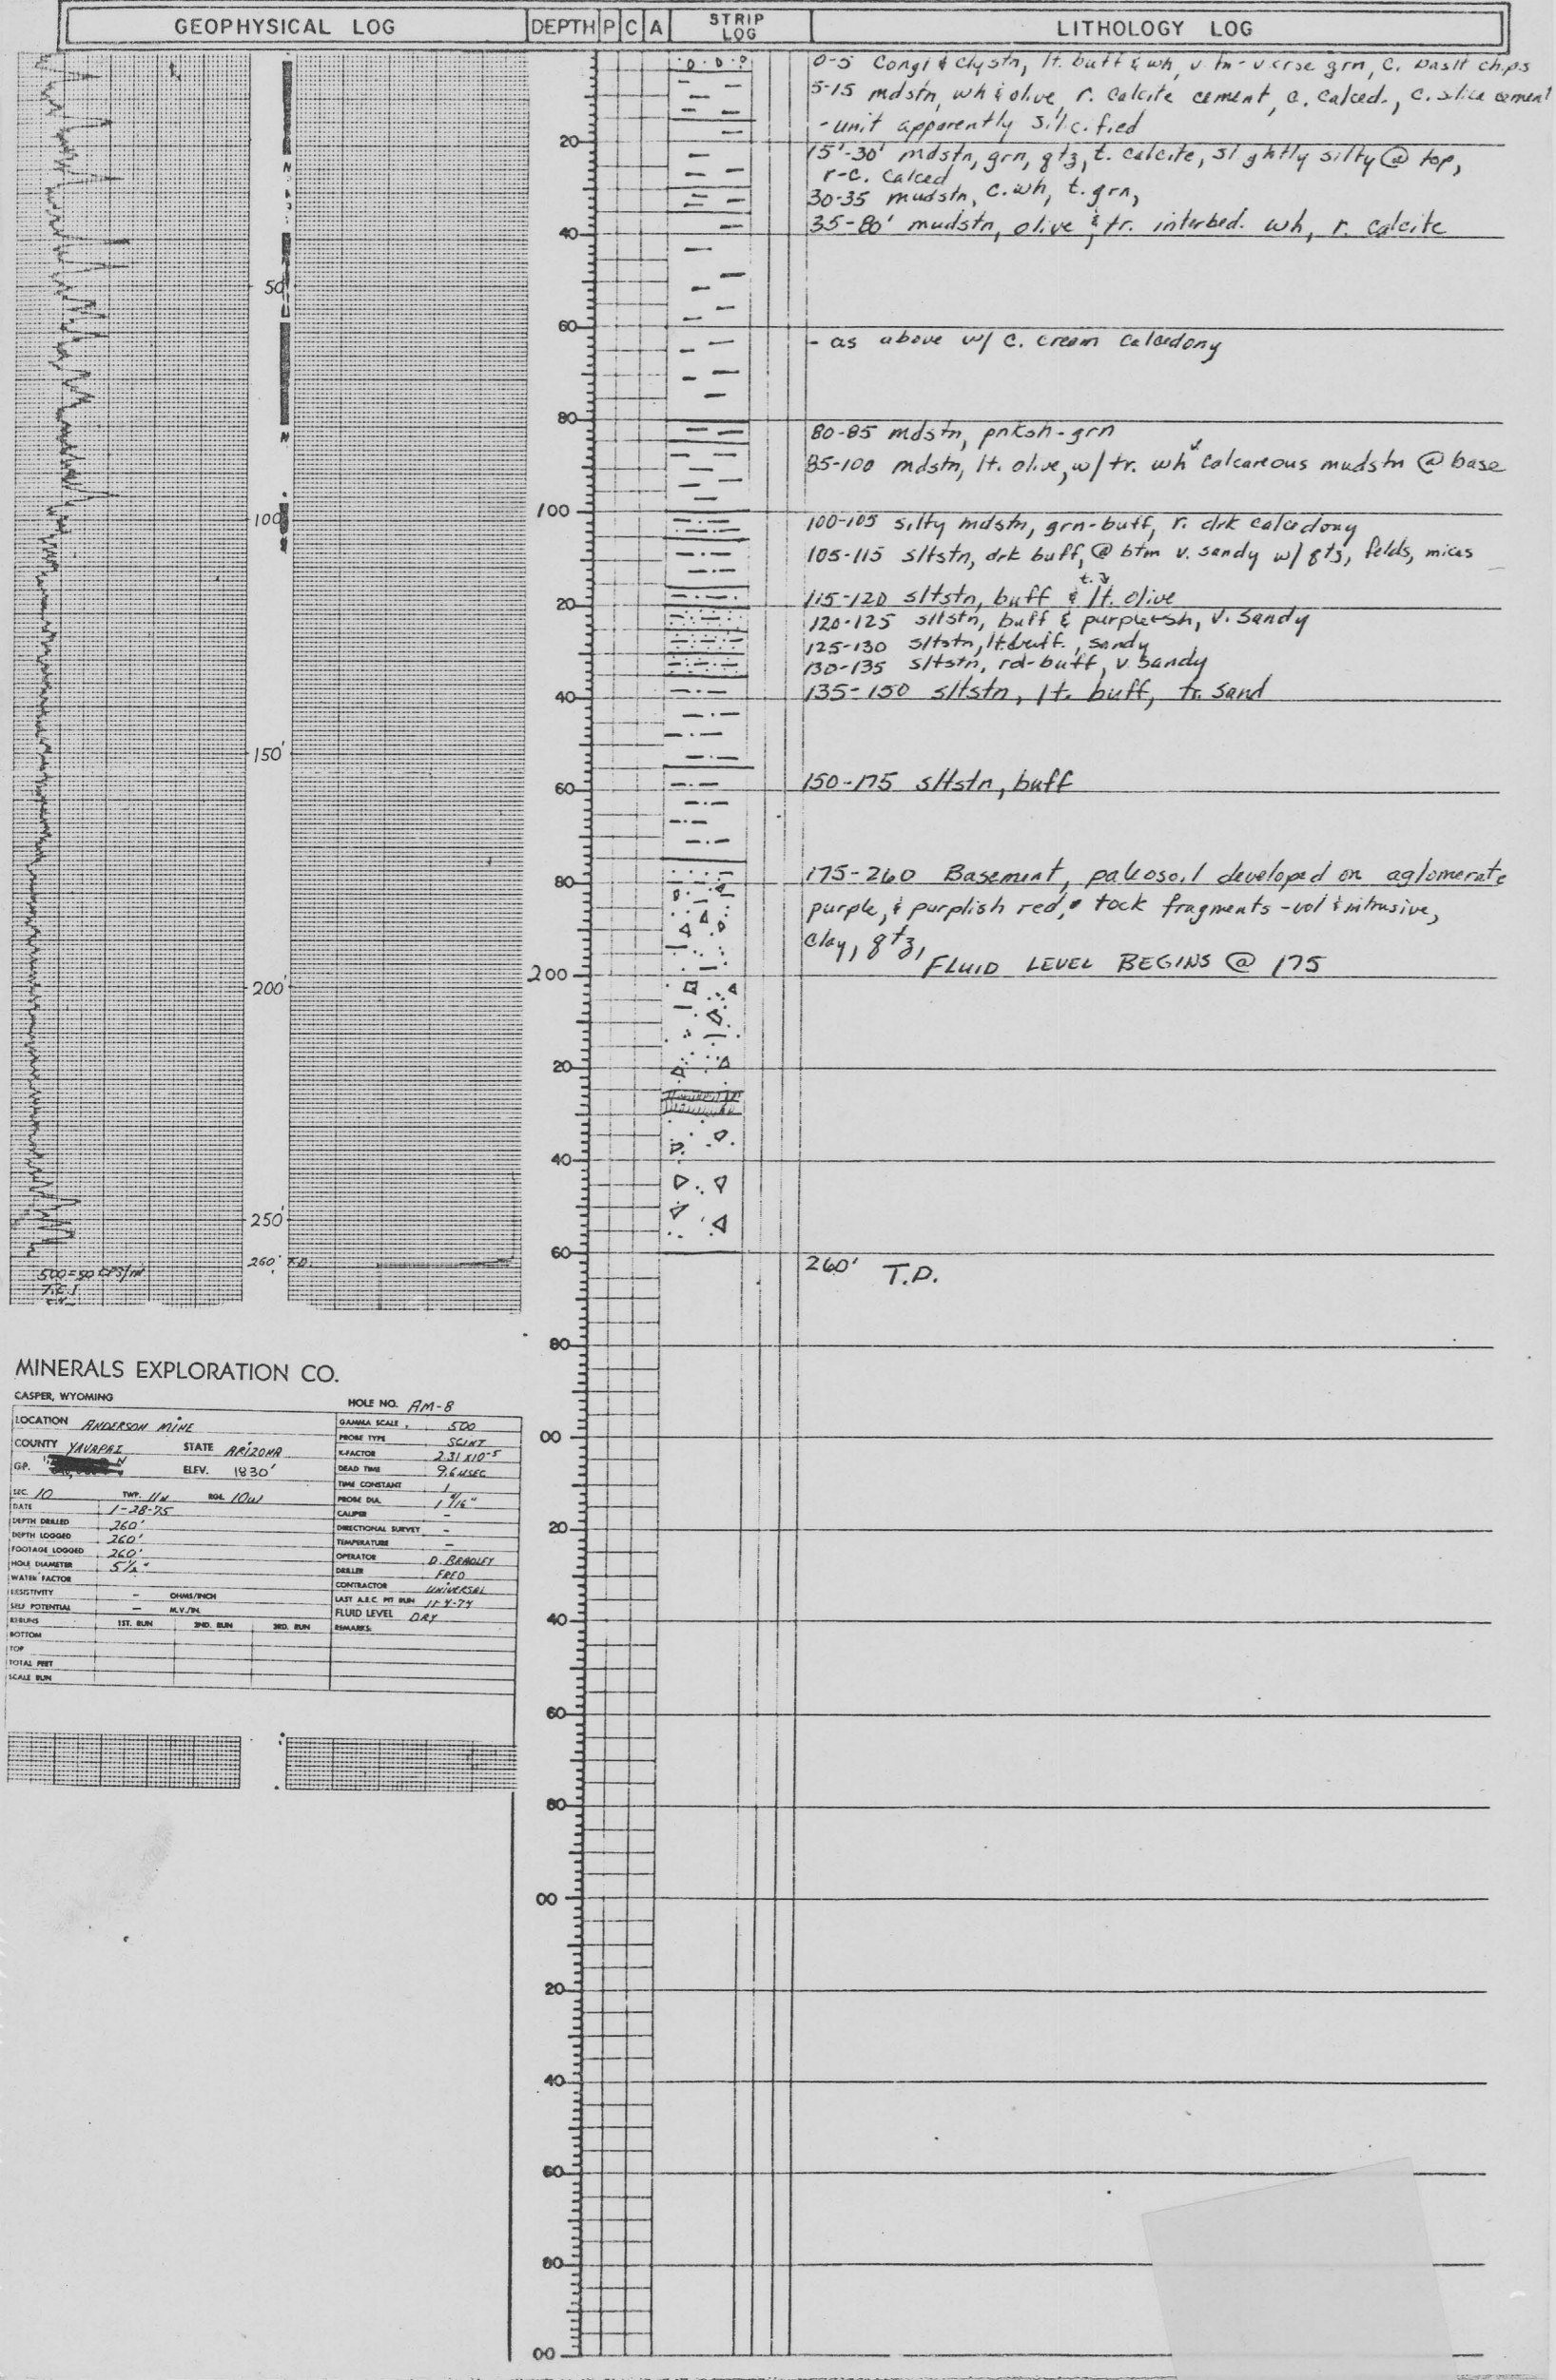 GEOPHYSICAL LOG
DEPTH P C A STRIP LOG
LITHOLOGY LOG
0-5 Congl & clystn, lt. buff & wh, v. fn - v crse grn, c. baslt chips
5-15 mdstn, wh & olive, r. calcite cement, c. calced., c. slice cement
- unit apparently silicified
15'-30' mdstn, grn, qtz, t. calcite, slightly silty @ top,
r-c. calced
30-35 mudstn, c. wh, t. grn,
35-80' mudstn, olive & tr. interbed. wh, r. calcite
- as above w/ c. cream calcedony
80-85 mdstn, pnksh-grn
85-100 mdstn, lt. olive, w/ tr. wh calcareous mudstn @ base
100-105 silty mdstn, grn-buff, r. drk calcedony
105-115 sltstn, drk buff, @ btm v. sandy w/ qtz, felds, micas
115-120 sltstn, buff & t. lt. olive
120-125 sltstn, buff & purplersh, v. sandy
125-130 sltstn, lt. buff., sandy
130-135 sltstn, rd-buff, v. sandy
135-150 sltstn, lt. buff, tr. sand
150-175 sltstn, buff
175-260 Basement, paleosoil developed on aglomerate
purple, & purplish red, rock fragments - vol & intrusive,
clay, qtz,
FLUID LEVEL BEGINS @ 175
260' T.D.
20
40
60
80
100
20
40
60
80
200
20
40
60
80
00
20
40
60
80
00
20
40
60
80
00
50'
100'
150'
200'
250'
260' T.D.
N
N
500=50 CPS/IN
MINERALS EXPLORATION CO.
CASPER, WYOMING
HOLE NO. AM-8
LOCATION ANDERSON MINE
COUNTY YAVAPAI STATE ARIZONA
GP. ELEV. 1830'
SEC. 10 TWP. 11N RGE. 10W
DATE 1-28-75
DEPTH DRILLED 260'
DEPTH LOGGED 260'
FOOTAGE LOGGED 260'
HOLE DIAMETER 5 1/2"
WATER FACTOR
RESISTIVITY - OHMS/INCH
SELF POTENTIAL - M.V./IN.
RERUNS 1ST. RUN 2ND. RUN 3RD. RUN
BOTTOM
TOP
TOTAL FEET
SCALE RUN
GAMMA SCALE 500
PROBE TYPE SCINT
K-FACTOR 2.31 X10-5
DEAD TIME 9.6 uSEC
TIME CONSTANT 1
PROBE DIA.
CALIPER -
DIRECTIONAL SURVEY -
TEMPERATURE -
OPERATOR D. BRADLEY
DRILLER FRED
CONTRACTOR UNIVERSAL
LAST A.E.C. PIT RUN 11-4-74
FLUID LEVEL DRY
REMARKS: